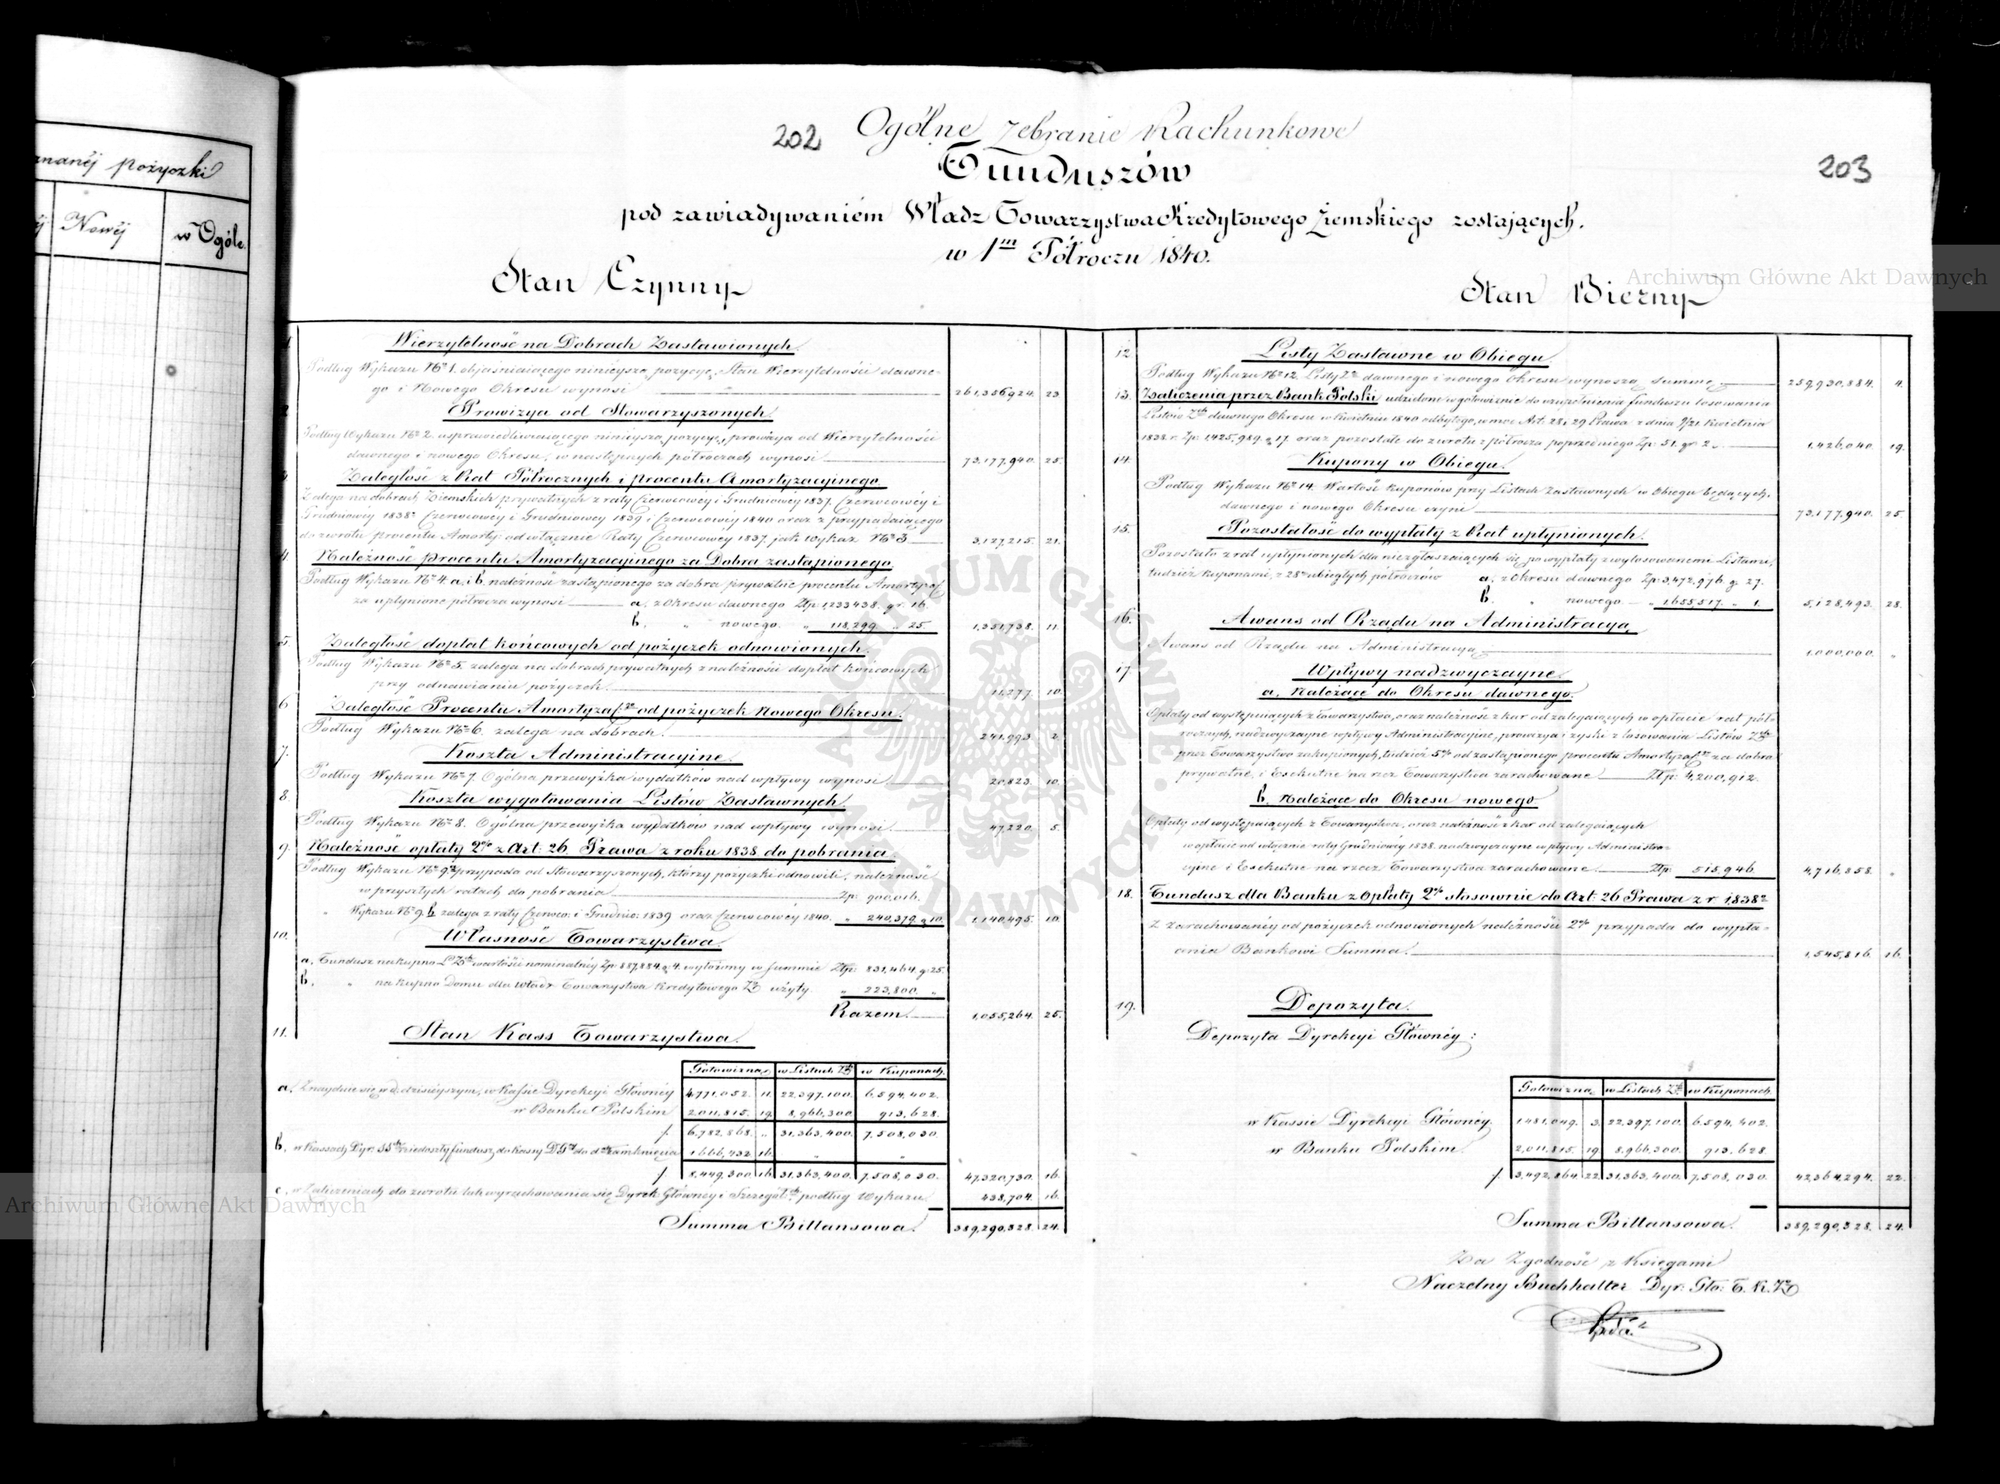 nanéj pożyczki
Nowéj
w Ogóle
202
Ogólne Zebranie Rachunkowe
203
Funduszów
pod zawiadywaniem Władz Towarzystwa Kredytowego Ziemskiego zostających.
w 1m Półroczu 1840.
Stan Czynny
Stan Bierny
Archiwum Główne Akt Dawnych
Wierzytelność na Dobrach Zastawionych.
Podług Wykazu No 1. objaśniaiącego ninieysze pozycye, Stan Wierzytelności dawne-
go i Nowego Okresu wynosi 261,356,924. 23.
2. Prowizya od Stowarzyszonych.
Podług Wykazu No 2. usprawiedliwiaiącego ninieyszą pozycyę, prowizya od Wierzytelności
dawnego i nowego Okresu, w następnych półroczach wynosi 73,177,940. 25.
3. Zaległość z Rat Półrocznych i procentu Amortyzacyinego
Zalega na dobrach Ziemskich prywatnych z raty Czerwcowéy i Grudniowéy 1837. Czerwcowéy i
Grudniowéy 1838. Czerwcowéy i Grudniowéy 1839 i Czerwcowéy 1840 oraz z przypadaiącego
do zwrotu procentu Amorty: od włącznie Raty Czerwcowéy 1837. jak Wykaz No 3 3,127,215. 21.
4. Należność procentu Amortyzacyinego za Dobra zastąpionego
Podług Wykazu No 4. a, i b. należność zastąpionego za dobra prywatne procentu Amortyzac:
za upłynione półrocza wynosi a, z Okresu dawnego Złp: 1,233,438. gr. 16.
b. " nowego. " 118,299. " 25. 1,351,738. 11.
5. Zaległość dopłat końcowych od pożyczek odnowionych.
Podług Wykazu No 5. zalega na dobrach prywatnych z należności dopłat końcowych
przy odnawianiu pożyczek. 11,277. 10.
6. Zaległość Procentu Amortyzac: od pożyczek Nowego Okresu.
Podług Wykazu No 6. zalega na dobrach. 241,993. 2.
7. Koszta Administracyine.
Podług Wykazu No 7. Ogólna przewyżka wydatków nad wpływy wynosi 20,823. 10.
8. Koszta wygotowania Listów Zastawnych.
Podług Wykazu No 8. Ogólna przewyżka wydatków nad wpływy wynosi 47,220. 5.
9. Należność opłaty 2% z Art: 26. Prawa z roku 1838 do pobrania
Podług Wykazu No 9. a przypada od Stowarzyszonych, którzy pożyczki odnowili, należność
w przyszłych ratach do pobrania Złp: 900,016.
" Wykazu No 9. b. zalega z raty Czerwco: i Grudnio: 1839 oraz Czerwcowéy 1840. " 240,379. g 10. 1,140,495. 10.
10. Własność Towarzystwa.
a, Fundusz na kupno L. Zast: wartości nominalnéy Zp 887,884. g. 4. wyłożony w summie Złp: 831,464. g: 25.
b. " na kupno Domu dla Władz Towarzystwa Kredytowego Zgo użyty. " 223,800. "
Razem. 1,055,264. 25.
11. Stan Kass Towarzystwa.
Gotowizna, w Listach Zst: w Kuponach.
a. Znayduie się w d. dzisieyszym, w Kassie Dyrekcyi Główney 4,771,052. 11. 22,397,100. 6,594,402.
w Banku Polskim 2,011,815. 19. 8,966,300. 913,628.
f. 6,782,868. " 31,363,400. 7,508,030.
b. w Kassach Dyr: SSych niedoszły fundusz do kassy D. Gł. do dnia zamknięcia 1,666,432. 16. " "
f 8,449,300. 16. 31,363,400. 7,508,030. 47,320,730. 16.
c. w Zaliczeniach do zwrotu lub wyrachowania się Dyrek: Główney i Szczegół: podług Wykazu 438,704. 16.
Summa Billansowa. 389,290,328. 24.
12. Listy Zastawne w Obiegu
Podług Wykazu No 12. Listy Zne dawnego i nowego Okresu wynoszą summę 259,930,884. 4.
13. Zaliczenia przez Bank Polski udzielone w gotowiznie do uzupełnienia funduszu losowania
Listów Zch dawnego Okresu w Kwietniu 1840 odbytego, w moc Art. 28 i 29 Prawa z dnia 9/21 Kwietnia
1838 r. Zp: 1,425,989. g 17. oraz pozostałe do zwrotu z półrocza poprzedniego Zp: 51. gr 2. 1,426,040. 19.
14. Kupony w Obiegu.
Podług Wykazu No 14. Wartość kuponów przy Listach Zastawnych w Obiegu będących,
dawnego i nowego Okresu czyni 73,177,940. 25.
15. Pozostałość do wypłaty z Rat upłynionych.
Pozostało z rat upłynionych dla niezgłaszaiących się po wypłaty z wylosowanemi Listami,
tudzież kuponami, z 28iu ubiegłych półroczów a, z Okresu dawnego Zp: 3,472,976. g. 27.
b. " nowego " 1,655,517. " 1. 5,128,493. 28.
16. Awans od Rządu na Administracyą,
Awans od Rządu na Administracyą 1,000,000. "
17. Wpływy nadzwyczayne.
a. Należące do Okresu dawnego.
Opłaty od występuiących z Towarzystwa, oraz należność z kar od zalegaiących w opłacie rat pół-
rocznych, nadzwyczayne wpływy Administracyine, prowizya i zyski z losowania Listów Zch
przez Towarzystwo zakupionych, tudzież 5% od zastąpionego procentu Amortyzac: za dobra
prywatne, i Exekutne na rzecz Towarzystwa zarachowane Złp: 4,200,912.
b. Należące do Okresu nowego.
Opłaty od występuiących z Towarzystwa, oraz należność z kar od zalegaiących
w opłacie od włącznie raty Grudniowéy 1838. nadzwyczayne wpływy Administra-
cyine i Exekutne na rzecz Towarzystwa zarachowane. Złp: 515,946. 4,716,858. "
18. Fundusz dla Banku z Opłaty 2% stosownie do Art: 26 Prawa z r. 1838o
Z zarachowanéy od pożyczek odnowionych należności 2% przypada do wypła-
cenia Bankowi Summa. 1,545,816. 16.
19. Depozyta.
Depozyta Dyrekcyi Głównéy:
Gotowizna, w Listach Zst: w Kuponach.
w Kassie Dyrekcyi Główney. 1,481,049. 3. 22,397,100. 6,594,402.
w Banku Polskim. 2,011,815. 19. 8,966,300. 913,628.
f. 3,492,864. 22. 31,363,400. 7,508,030. 42,364,294. 22.
Summa Billansowa. 389,290,328. 24.
Za Zgodność z Księgami
Naczelny Buchhalter Dyr: Głó: T. K. Z
Archiwum Główne Akt Dawnych
ARCHIWUM GŁÓWNE AKT DAWNYCH